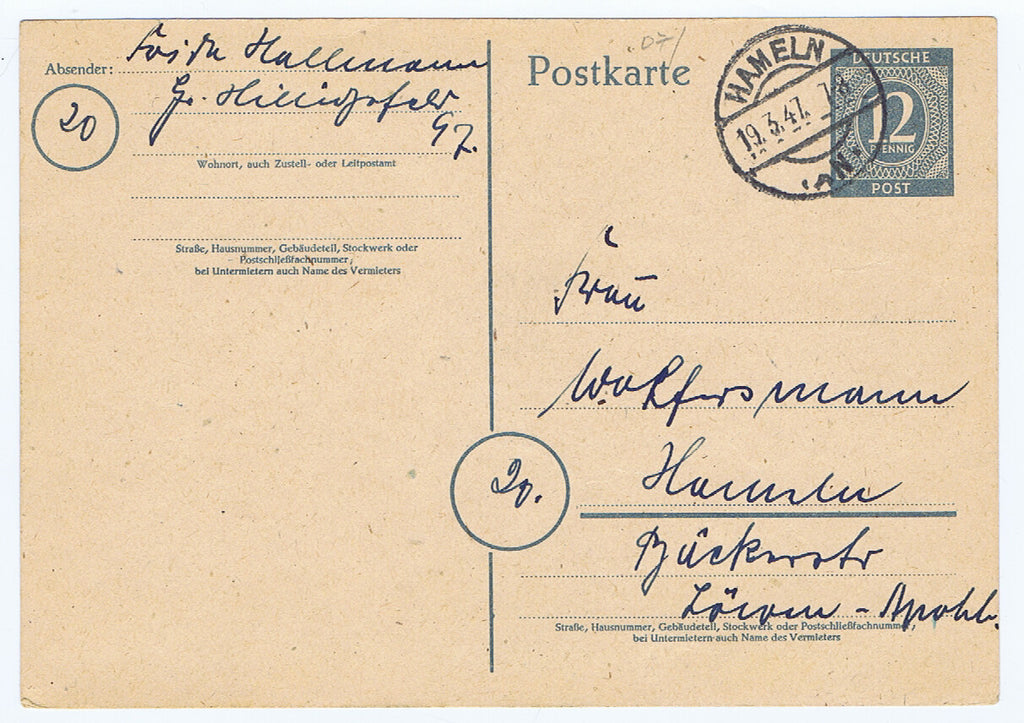 Absender: Frida Hallmann
Gr. Hilligsfeld
97.
20
Wohnort, auch Zustell- oder Leitpostamt
Straße, Hausnummer, Gebäudeteil, Stockwerk oder
Postschließfachnummer;
bei Untermietern auch Name des Vermieters
Postkarte
HAMELN
19.3.47. 7-8
DEUTSCHE
12
PFENNIG
POST
Frau
Hameln
20.
Bäckerstr
Löwen-Apoth.
Straße, Hausnummer, Gebäudeteil, Stockwerk oder Postschließfachnummer,
bei Untermietern auch Name des Vermieters